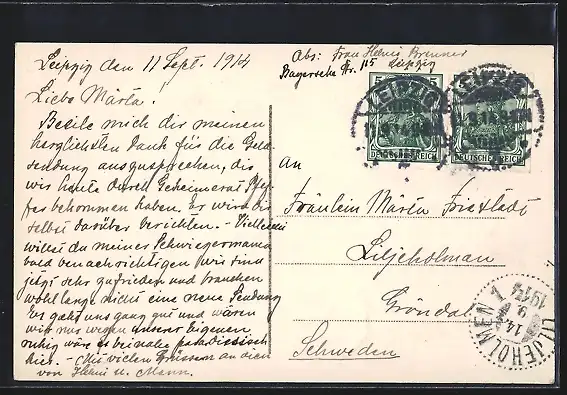 Leipzig den 11 Sept. 1914
Liebe Märta.
Beeile mich dir meinen
herzlichsten dank für die Geld-
sendung auszusprechen, die
wir heute durch Geheimerat Pfef-
fer bekommen haben. Er wird dir
selbst darüber berichten. - Vielleicht
willst du meiner Schwiegermama
bald benachrichtigen. Wir sind
jetzt sehr zufrieden und brauchen
wohl lange nicht eine neue Sendung
Es geht uns ganz gut und wären
wir nur wegen unserer Eigenen
ruhig wäre es beinahe paradiesisch
hier. - Mit vielen Grüssen an dich
von Helmi u. Mann.
Abs: Frau Helmi Brenner
Bayersche Str. 115 Leipzig
LEIPZIG
DEUTSCHES REICH
LEIPZIG
DEUTSCHES REICH
An
Fräulein Märta Frixstedt
Liljeholman
Gröndal
Schweden
LILJEHOLMEN 1
14
9
1914